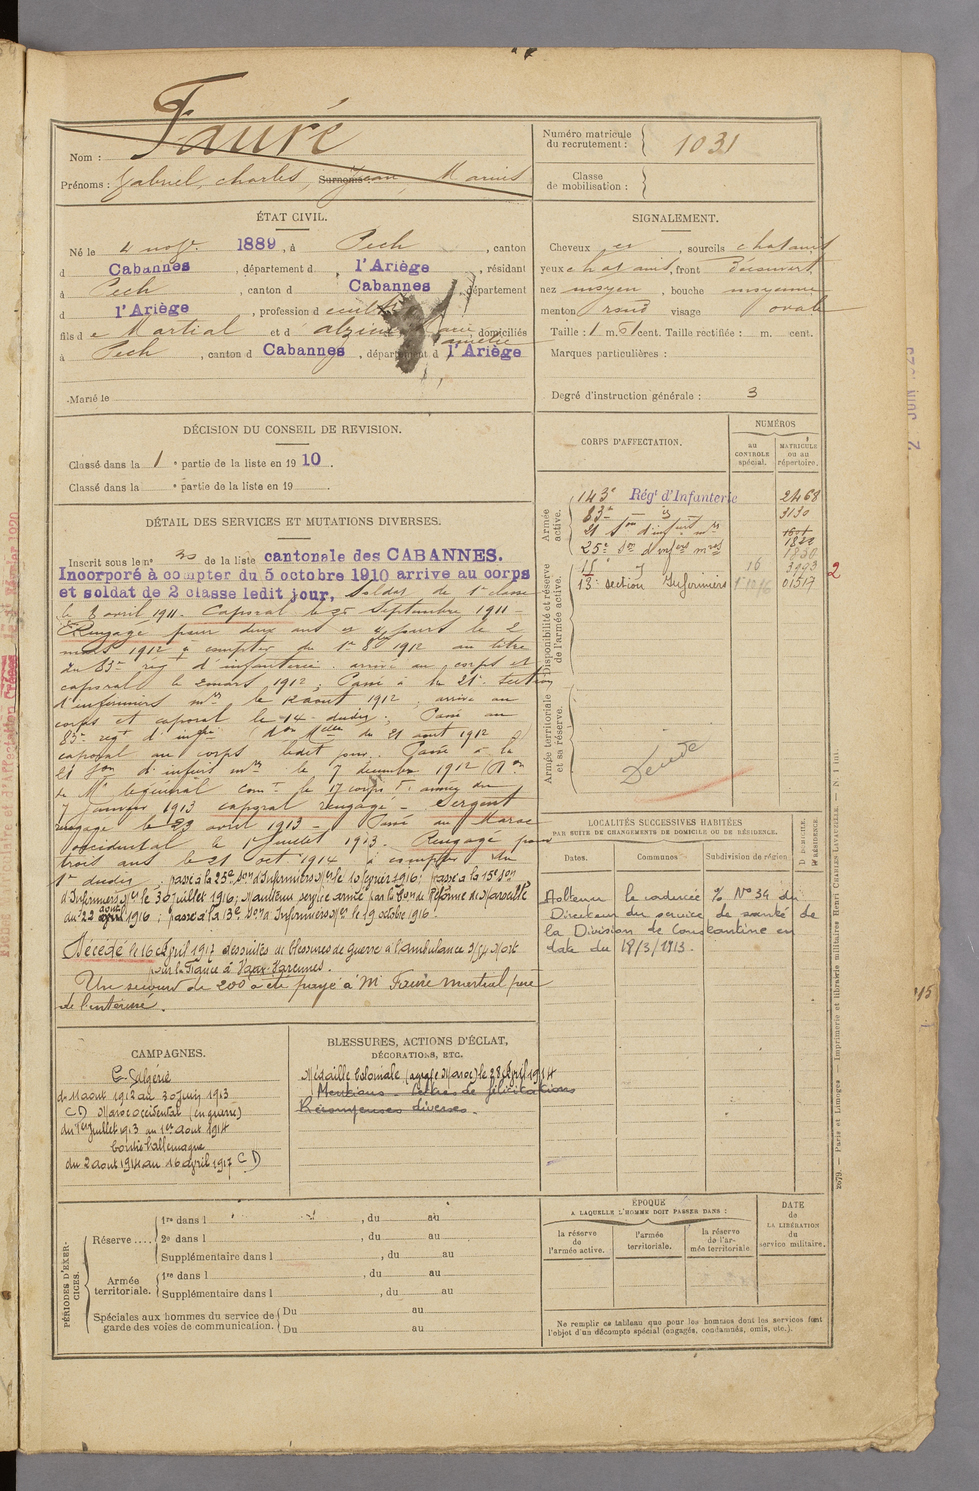 Nom : Fauré
Prénoms : Gabriel, charles, Surnoms Jean, Marius
Numéro matricule du recrutement : 1031
Classe de mobilisation :
ÉTAT CIVIL.
Né le 4 nov. 1889, à Pech, canton
d Cabannes, département d l'Ariège, résidant
à Pech, canton d Cabannes, département
d l'Ariège, profession d
fils de Martial et d domiciliés
à Pech, canton d Cabannes, département d l'Ariège
Marié le
SIGNALEMENT.
Cheveux, sourcils chatains
yeux chatains, front Découvert
nez moyen, bouche moyenne
menton rond visage ovale
Taille : 1 m. 61 cent. Taille rectifiée : m. cent.
Marques particulières :
Degré d'instruction générale : 3
DÉCISION DU CONSEIL DE REVISION.
Classé dans la 1e partie de la liste en 1910.
Classé dans la e partie de la liste en 19
DÉTAIL DES SERVICES ET MUTATIONS DIVERSES.
Inscrit sous le n° 30 de la liste cantonale des CABANNES.
Incorporé à compter du 5 octobre 1910 arrive au corps
et soldat de 2 classe ledit jour, Soldat de 1e classe
le 8 avril 1911. Caporal le 25 Septembre 1911 -
Rengagé pour deux ans et jours le 2
mars 1912 à compter du 1er 8bre 1912 au titre
du 83me rég. d'infanterie. arrivé au corps et
caporal le 2 mars 1912; Passé à la 21e Section
d'infirmiers mres le 12 aout 1912, arrivé au
corps et caporal le 14 dudit; Passé au
83e regt d'infrie (Don Mlle du 21 aout 1912)
caporal au corps ledit jour. Passé à la
21 Son d'infirs mres le 7 décembre 1912 (Don
de Mr le Général comt le 17 corps d'armée du
7 Janvier 1913 caporal rengagé - Sergent
rengagé le 23 avril 1913 - Passé au Maroc
occidental le 1er Juillet 1913. Rengagé pour
trois ans le 21 oct 1914 à compter du
1er dudit; passé à la 25e Son d'Infirmiers Mres le 10 février 1916; passé à la 15e Son
d'Infirmiers Mres le 30 juillet 1916; Maintenu service armé par la Con de Réforme de Marseille
du 22 août 1916; passé à la 13e Son d'Infirmiers Mres le 19 octobre 1916.
Décédé le 16 Avril 1917 des suites de blessures de guerre à l'ambulance 3/54 Mort
pour la France à Vaux-Varennes.
Un secours de 200f a été payé à Mr Fauré Martial père
de l'intéressé.
CORPS D'AFFECTATION.
NUMÉROS
au CONTROLE spécial.
MATRICULE ou au répertoire.
Armée active.
143e Régt d'Infanterie 2468
83me — id — 3130
21 Son d'infirs mres 1820
25e Son d'infirs mres 1830
15e — id 16 3993
13e Section Infirmiers 01517
2
Disponibilité et réserve de l'armée active.
Armée territoriale et sa réserve.
Décédé
LOCALITÉS SUCCESSIVES HABITÉES
PAR SUITE DE CHANGEMENTS DE DOMICILE OU DE RÉSIDENCE.
Dates. Communes. Subdivision de région. D. DOMICILE. R. RÉSIDENCE.
Obtenu le N° 34 du
Directeur du service de santé de
la Division de Constantine en
date du 18/3/1913.
CAMPAGNES.
Algérie
du 11 aout 1912 au 30 juin 1913
CD Maroc occidental (en guerre)
du 1er juillet 1913 au 1er aout 1914
Contre l'allemagne
du 2 aout 1914 au 16 avril 1917 CD
BLESSURES, ACTIONS D'ÉCLAT,
DÉCORATIONS, ETC.
Médaille Coloniale (agrafe Maroc) le 28 Avril 1914
Mentions - Lettres de félicitations
Récompenses diverses.
PÉRIODES D'EXERCICES.
Réserve .... 1re dans l , du au
2e dans l , du au
Supplémentaire dans l , du au
Armée territoriale. 1re dans l , du au
Supplémentaire dans l , du au
Spéciales aux hommes du service de garde des voies de communication. Du au
Du au
ÉPOQUE
A LAQUELLE L'HOMME DOIT PASSER DANS :
la réserve de l'armée active.
l'armée territoriale.
la réserve de l'armée territoriale.
DATE de LA LIBÉRATION du service militaire.
Ne remplir ce tableau que pour les hommes dont les services font
l'objet d'un décompte spécial (engagés, condamnés, omis, etc.).
2679. — Paris et Limoges. — Imprimerie et librairie militaires Henri CHARLES-LAVAUZELLE. — N. 1 int.